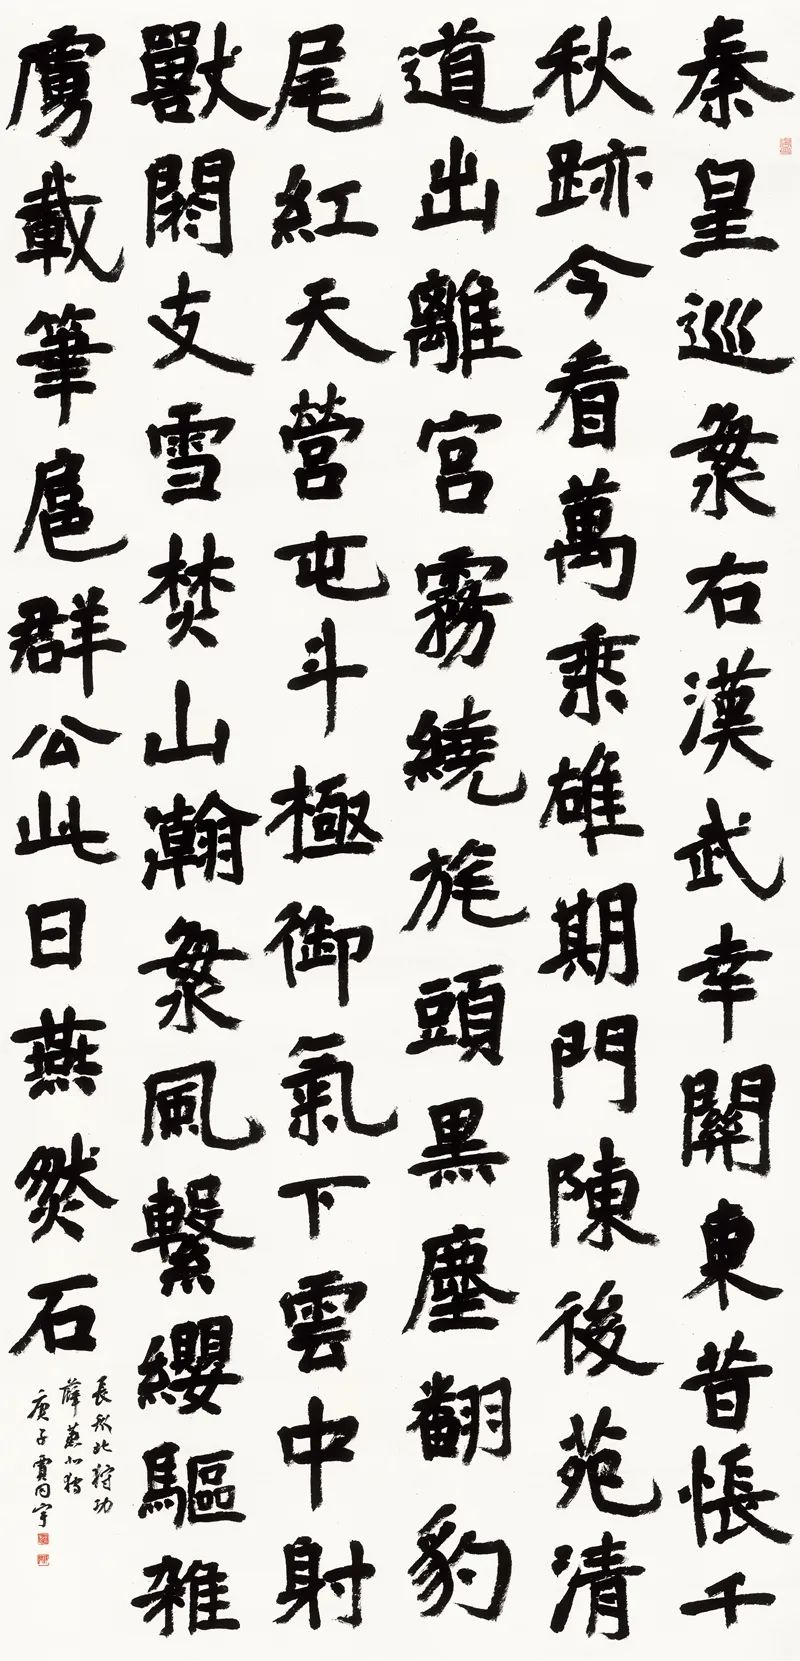 秦皇巡海右漢武幸關東昔悵千
秋跡今看萬乘雄期門陳後苑清
道出離宮霧繞旄頭黑塵翻豹
尾紅天營屯斗極御氣下雲中射
獸閼支雪焚山瀚海風繫纓驅雜
虜載筆扈群公此日燕然石
長北狩功
薛蕙北狩
庚子賈同宇